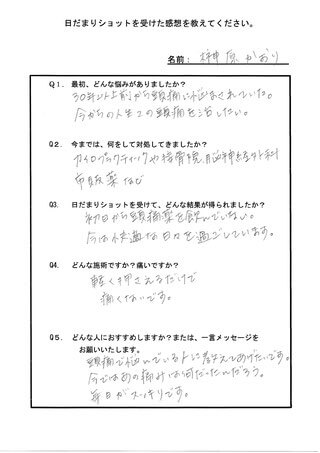 日だまりショットを受けた感想を教えてください。
名前: 榊原 かおり
Q1. 最初、どんな悩みがありましたか?
30年以上前から頭痛に悩まされていた。
今からの人生での頭痛を治したい。
Q2. 今までは、何をして対処してきましたか?
カイロプラクティックや接骨院、脳神経外科
市販薬など
Q3. 日だまりショットを受けて、どんな結果が得られましたか?
初日から頭痛薬を飲んでいない。
今は快適な日々を過ごしています。
Q4. どんな施術ですか?痛いですか?
軽く押さえるだけで
痛くないです。
Q5. どんな人におすすめしますか?または、一言メッセージを
お願いいたします。
頭痛で悩んでいる人に教えてあげたいです。
今ではあの痛みは何だったんだろう。
毎日がスッキリです。